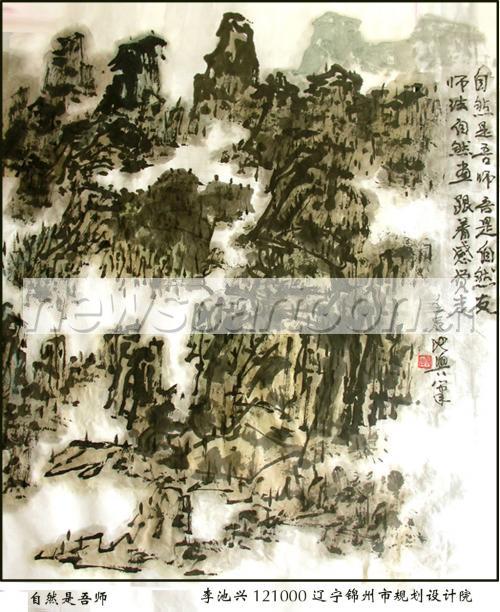 自然是吾师吾是自然友
师法自然画跟着感觉走
池兴
newscartoon.cn
自然是吾师
李池兴 121000 辽宁锦州市规划设计院